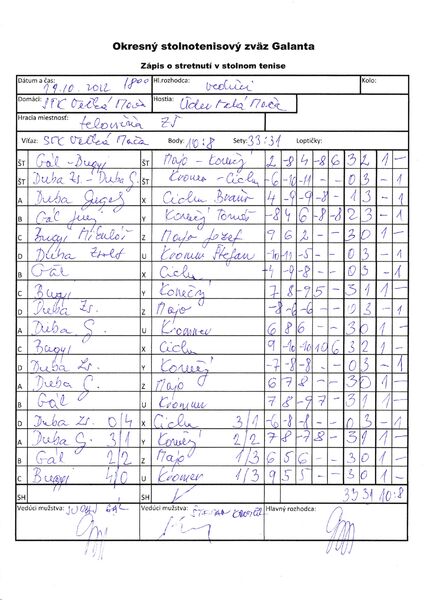 Okresný stolnotenisový zväz Galanta
Zápis o stretnutí v stolnom tenise
Dátum a čas: 19.10.2012 1800 Hl.rozhodca: vedúci Kolo:
Domáci: STK Veľká Mača Hostia: Malá Mača
Hracia miestnosť: telocvičňa ZŠ
Víťaz: STK Veľká Mača Body: 10:8 Sety: 33:31 Loptičky:
ŠT Gál - Bugyi ŠT Majo - Konečný 2 -8 4 -8 6 3 2 1 -
ŠT Duba Zs. - Duba G. ŠT Kromer - Cichu -6 -10 -11 - - 0 3 - 1
A Duba X Cichu 4 -9 -9 -8 - 1 3 - 1
B Gál Juraj Y Konečný Tomáš -8 4 6 -8 -8 2 3 - 1
C Bugyi Mikuláš Z Majo Jozef 9 6 2 - - 3 0 1 -
D Duba Zsolt U Kromer Štefan -10 -11 -5 - - 0 3 - 1
B Gál X Cichu -4 -9 -8 - - 0 3 - 1
C Bugyi Y Konečný 7 8 -9 5 - 3 1 1 -
D Duba Zs. Z Majo -8 -6 -6 - - 0 3 - 1
A Duba G. U Kromer 6 8 6 - - 3 0 1 -
C Bugyi X Cichu 9 -10 -10 10 6 3 2 1 -
D Duba Zs. Y Konečný -7 -8 -8 - - 0 3 - 1
A Duba G. Z Majo 6 7 8 - - 3 0 1 -
B Gál U Kromer 7 8 -9 7 - 3 1 1 -
D Duba Zs. 0/4 X Cichu 3/1 -6 -8 -8 - - 0 3 - 1
A Duba G. 3/1 Y Konečný 2/2 7 8 -7 8 - 3 1 1 -
B Gál 2/2 Z Majo 1/3 6 5 6 - - 3 0 1 -
C Bugyi 4/0 U Kromer 1/3 9 5 5 - - 3 0 1 -
SH SH 33 31 10:8
Vedúci mužstva: Juraj Gál Vedúci mužstva: Štefan Hlavný rozhodca: